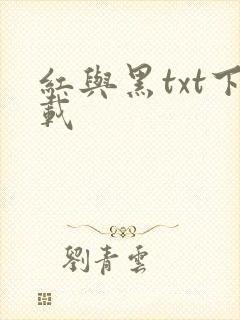 紅與黑txt下
載
劉青雲